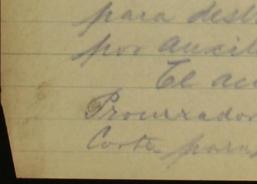 para desl
por auxil
El ac
Procurador
Corte para